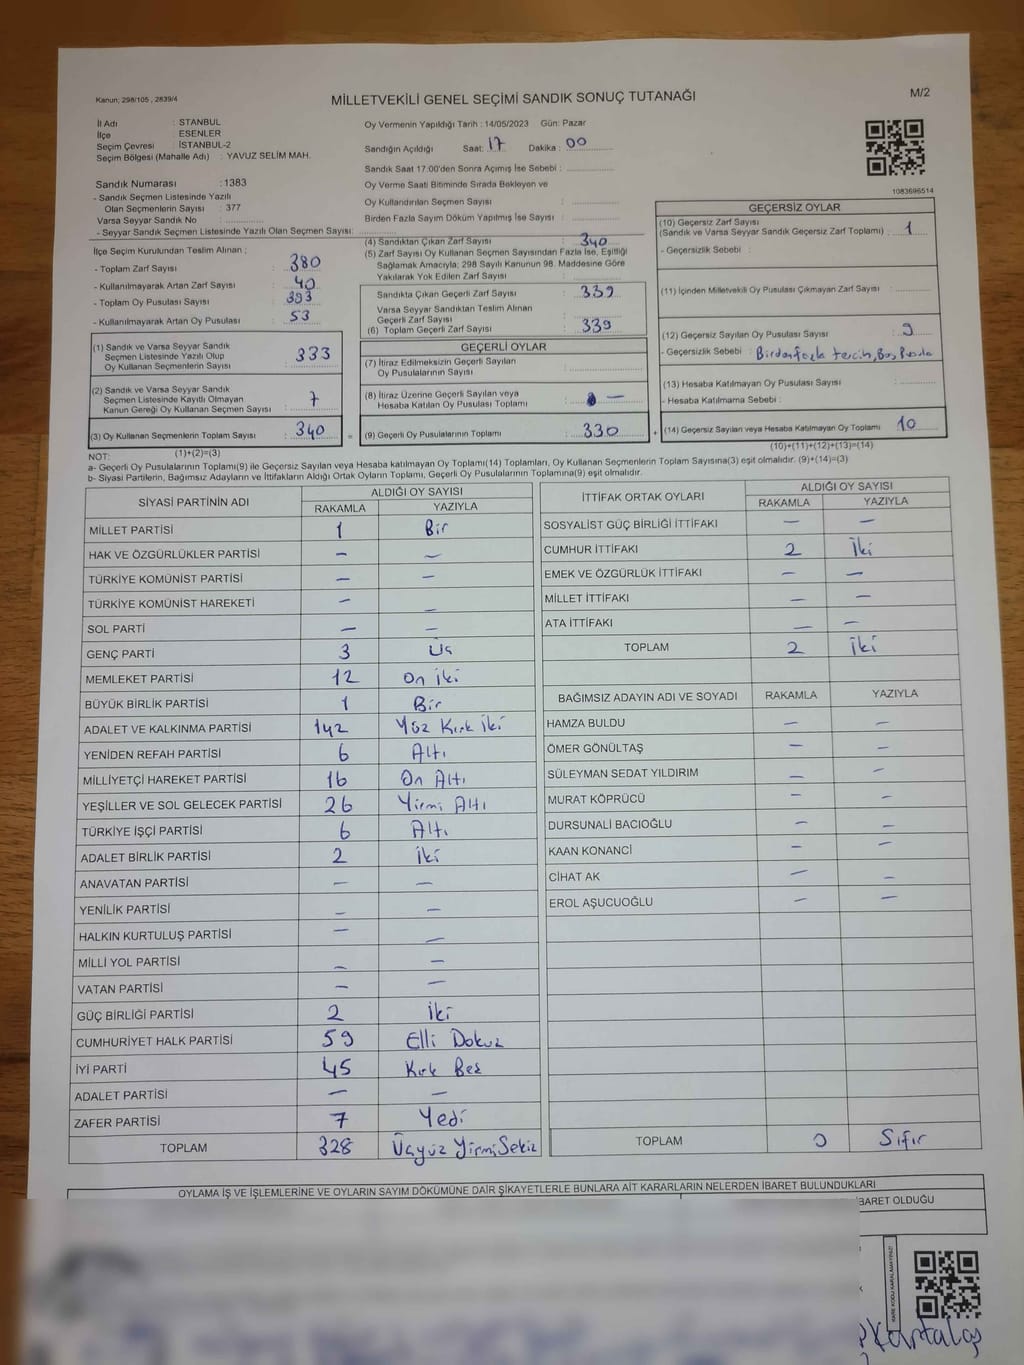 Kanun; 298/105 , 2839/4
MİLLETVEKİLİ GENEL SEÇİMİ SANDIK SONUÇ TUTANAĞI
M/2
İl Adı : STANBUL
İlçe : ESENLER
Seçim Çevresi : İSTANBUL-2
Seçim Bölgesi (Mahalle Adı) : YAVUZ SELİM MAH.
Oy Vermenin Yapıldığı Tarih : 14/05/2023 Gün: Pazar
Sandığın Açıldığı Saat: 17 Dakika : 00
Sandık Saat 17:00'den Sonra Açılmış İse Sebebi :
Oy Verme Saati Bitiminde Sırada Bekleyen ve
Oy Kullandırılan Seçmen Sayısı :
Birden Fazla Sayım Döküm Yapılmış İse Sayısı :
1083696514
Sandık Numarası : 1383
- Sandık Seçmen Listesinde Yazılı
Olan Seçmenlerin Sayısı : 377
Varsa Seyyar Sandık No :
- Seyyar Sandık Seçmen Listesinde Yazılı Olan Seçmen Sayısı:
İlçe Seçim Kurulundan Teslim Alınan ;
- Toplam Zarf Sayısı : 380
- Kullanılmayarak Artan Zarf Sayısı : 40
- Toplam Oy Pusulası Sayısı : 393
- Kullanılmayarak Artan Oy Pusulası : 53
(1) Sandık ve Varsa Seyyar Sandık
Seçmen Listesinde Yazılı Olup
Oy Kullanan Seçmenlerin Sayısı : 333
(2) Sandık ve Varsa Seyyar Sandık
Seçmen Listesinde Kayıtlı Olmayan
Kanun Gereği Oy Kullanan Seçmen Sayısı : 7
(3) Oy Kullanan Seçmenlerin Toplam Sayısı : 340
(4) Sandıktan Çıkan Zarf Sayısı : 340
(5) Zarf Sayısı Oy Kullanan Seçmen Sayısından Fazla İse, Eşitliği
Sağlamak Amacıyla; 298 Sayılı Kanunun 98. Maddesine Göre
Yakılarak Yok Edilen Zarf Sayısı :
Sandıkta Çıkan Geçerli Zarf Sayısı : 339
Varsa Seyyar Sandıktan Teslim Alınan
Geçerli Zarf Sayısı :
(6) Toplam Geçerli Zarf Sayısı : 339
GEÇERLİ OYLAR
(7) İtiraz Edilmeksizin Geçerli Sayılan
Oy Pusulalarının Sayısı :
(8) İtiraz Üzerine Geçerli Sayılan veya
Hesaba Katılan Oy Pusulası Toplamı : —
= (9) Geçerli Oy Pusulalarının Toplamı : 330
GEÇERSİZ OYLAR
(10) Geçersiz Zarf Sayısı
(Sandık ve Varsa Seyyar Sandık Geçersiz Zarf Toplamı) : 1
- Geçersizlik Sebebi :
(11) İçinden Milletvekili Oy Pusulası Çıkmayan Zarf Sayısı :
(12) Geçersiz Sayılan Oy Pusulası Sayısı : 9
- Geçersizlik Sebebi : Birden fazla tercih, Boş Pusula
(13) Hesaba Katılmayan Oy Pusulası Sayısı :
- Hesaba Katılmama Sebebi :
+ (14) Geçersiz Sayılan veya Hesaba Katılmayan Oy Toplamı 10
(1)+(2)=(3)
(10)+(11)+(12)+(13)=(14)
NOT:
a- Geçerli Oy Pusulalarının Toplamı(9) ile Geçersiz Sayılan veya Hesaba katılmayan Oy Toplamı(14) Toplamları, Oy Kullanan Seçmenlerin Toplam Sayısına(3) eşit olmalıdır. (9)+(14)=(3)
b- Siyasi Partilerin, Bağımsız Adayların ve İttifakların Aldığı Ortak Oyların Toplamı, Geçerli Oy Pusulalarının Toplamına(9) eşit olmalıdır.
SİYASİ PARTİNİN ADI ALDIĞI OY SAYISI
RAKAMLA YAZIYLA
MİLLET PARTİSİ 1 Bir
HAK VE ÖZGÜRLÜKLER PARTİSİ — —
TÜRKİYE KOMÜNİST PARTİSİ — —
TÜRKİYE KOMÜNİST HAREKETİ — —
SOL PARTİ — —
GENÇ PARTİ 3 Üç
MEMLEKET PARTİSİ 12 On iki
BÜYÜK BİRLİK PARTİSİ 1 Bir
ADALET VE KALKINMA PARTİSİ 142 Yüz Kırk İki
YENİDEN REFAH PARTİSİ 6 Altı
MİLLİYETÇİ HAREKET PARTİSİ 16 On Altı
YEŞİLLER VE SOL GELECEK PARTİSİ 26 Yirmi Altı
TÜRKİYE İŞÇİ PARTİSİ 6 Altı
ADALET BİRLİK PARTİSİ 2 İki
ANAVATAN PARTİSİ — —
YENİLİK PARTİSİ — —
HALKIN KURTULUŞ PARTİSİ — —
MİLLİ YOL PARTİSİ — —
VATAN PARTİSİ — —
GÜÇ BİRLİĞİ PARTİSİ 2 İki
CUMHURİYET HALK PARTİSİ 59 Elli Dokuz
İYİ PARTİ 45 Kırk Beş
ADALET PARTİSİ — —
ZAFER PARTİSİ 7 Yedi
TOPLAM 328 Üçyüz Yirmi Sekiz
İTTİFAK ORTAK OYLARI ALDIĞI OY SAYISI
RAKAMLA YAZIYLA
SOSYALİST GÜÇ BİRLİĞİ İTTİFAKI — —
CUMHUR İTTİFAKI 2 İki
EMEK VE ÖZGÜRLÜK İTTİFAKI — —
MİLLET İTTİFAKI — —
ATA İTTİFAKI — —
TOPLAM 2 İki
BAĞIMSIZ ADAYIN ADI VE SOYADI RAKAMLA YAZIYLA
HAMZA BULDU — —
ÖMER GÖNÜLTAŞ — —
SÜLEYMAN SEDAT YILDIRIM — —
MURAT KÖPRÜCÜ — —
DURSUNALİ BACIOĞLU — —
KAAN KONANCİ — —
CİHAT AK — —
EROL AŞUCUOĞLU — —
TOPLAM 0 Sıfır
OYLAMA İŞ VE İŞLEMLERİNE VE OYLARIN SAYIM DÖKÜMÜNE DAİR ŞİKAYETLERLE BUNLARA AİT KARARLARIN NELERDEN İBARET BULUNDUKLARI
İBARET OLDUĞU
KARE KODU KARALAMAYINIZ!